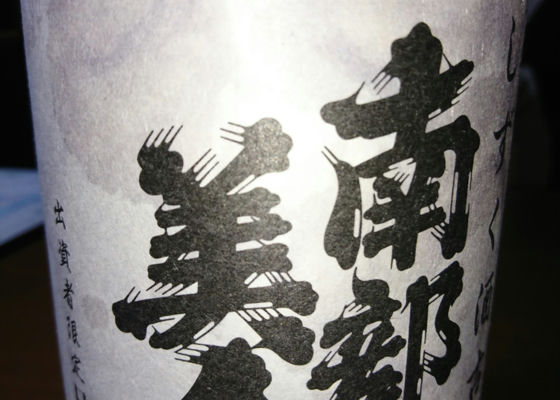 しずく酒
南部
美人
出資者限定